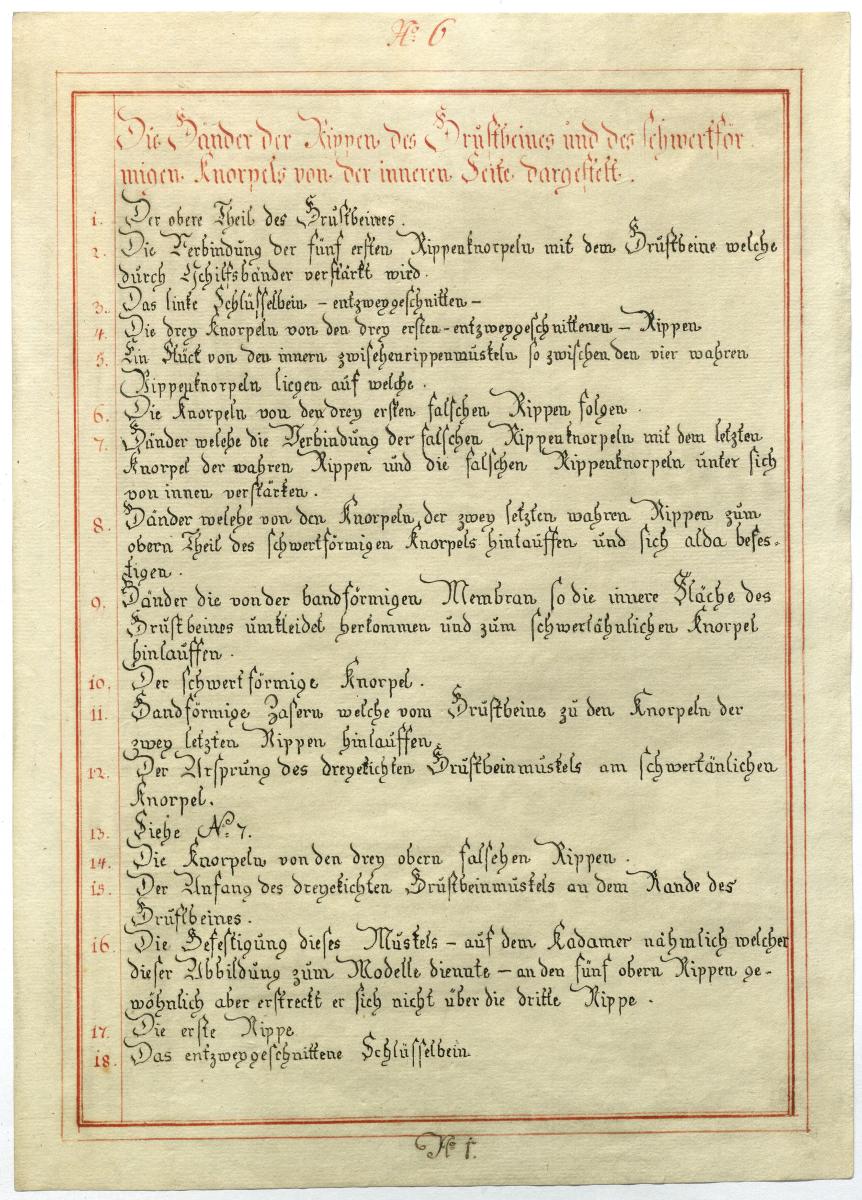 No. 6
Die Bänder der Rippen des Brustbeines und des schwertför
migen Knorpels von der inneren Seite dargestelt.
1. Der obere Theil des Brustbeines.
2. Die Verbindung der fünf ersten Rippenknorpeln mit dem Brustbeine welche
durch Hhilfsbänder verstärkt wird.
3. Das linke Schlüsselbein – entzweygeschnitten –
4. Die drey Knorpeln von den drey ersten – entzweygeschnittenen – Rippen
5. Ein Stück von den innern zwischenrippenmuskeln so zwischen den vier wahren
Rippenknorpeln liegen auf welche.
6. Die Knorpeln von den drey ersten falschen Rippen folgen.
7. Bänder welche die Verbindung der falschen Rippenknorpeln mit dem letzten
Knorpel der wahren Rippen und die falschen Rippenknorpeln unter sich
von innen verstärken.
8. Bänder welche von den Knorpeln der zwey letzten wahren Rippen zum
obern Theil des schwertförmigen Knorpels hinlauffen und sich alda befes-
tigen.
9. Bänder die von der bandförmigen Membran so die innere Fläche des
Brustbeines umkleidet herkommen und zum schwertähnlichen Knorpel
hinlauffen.
10. Der schwertförmige Knorpel.
11. Bandförmige Zasern welche vom Brustbeine zu den Knorpeln der
zwey letzten Rippen hinlauffen.
12. Der Ursprung des dreyekichten Brustbeinmuskels am schwertänlichen
Knorpel.
13. Siehe No. 7.
14. Die Knorpeln von den drey obern falschen Rippen.
15. Der Anfang des dreyekichten Brustbeinmuskels an dem Rande des
Brustbeines.
16. Die Befestigung dieses Muskels – auf dem Kadamer nähmlich welcher
dieser Abbildung zum Modelle diennte – an den fünf obern Rippen ge-
wöhnlich aber erstreckt er sich nicht über die dritte Rippe.
17. Die erste Rippe
18. Das entzweygeschnittene Schlüsselbein
No. 1.